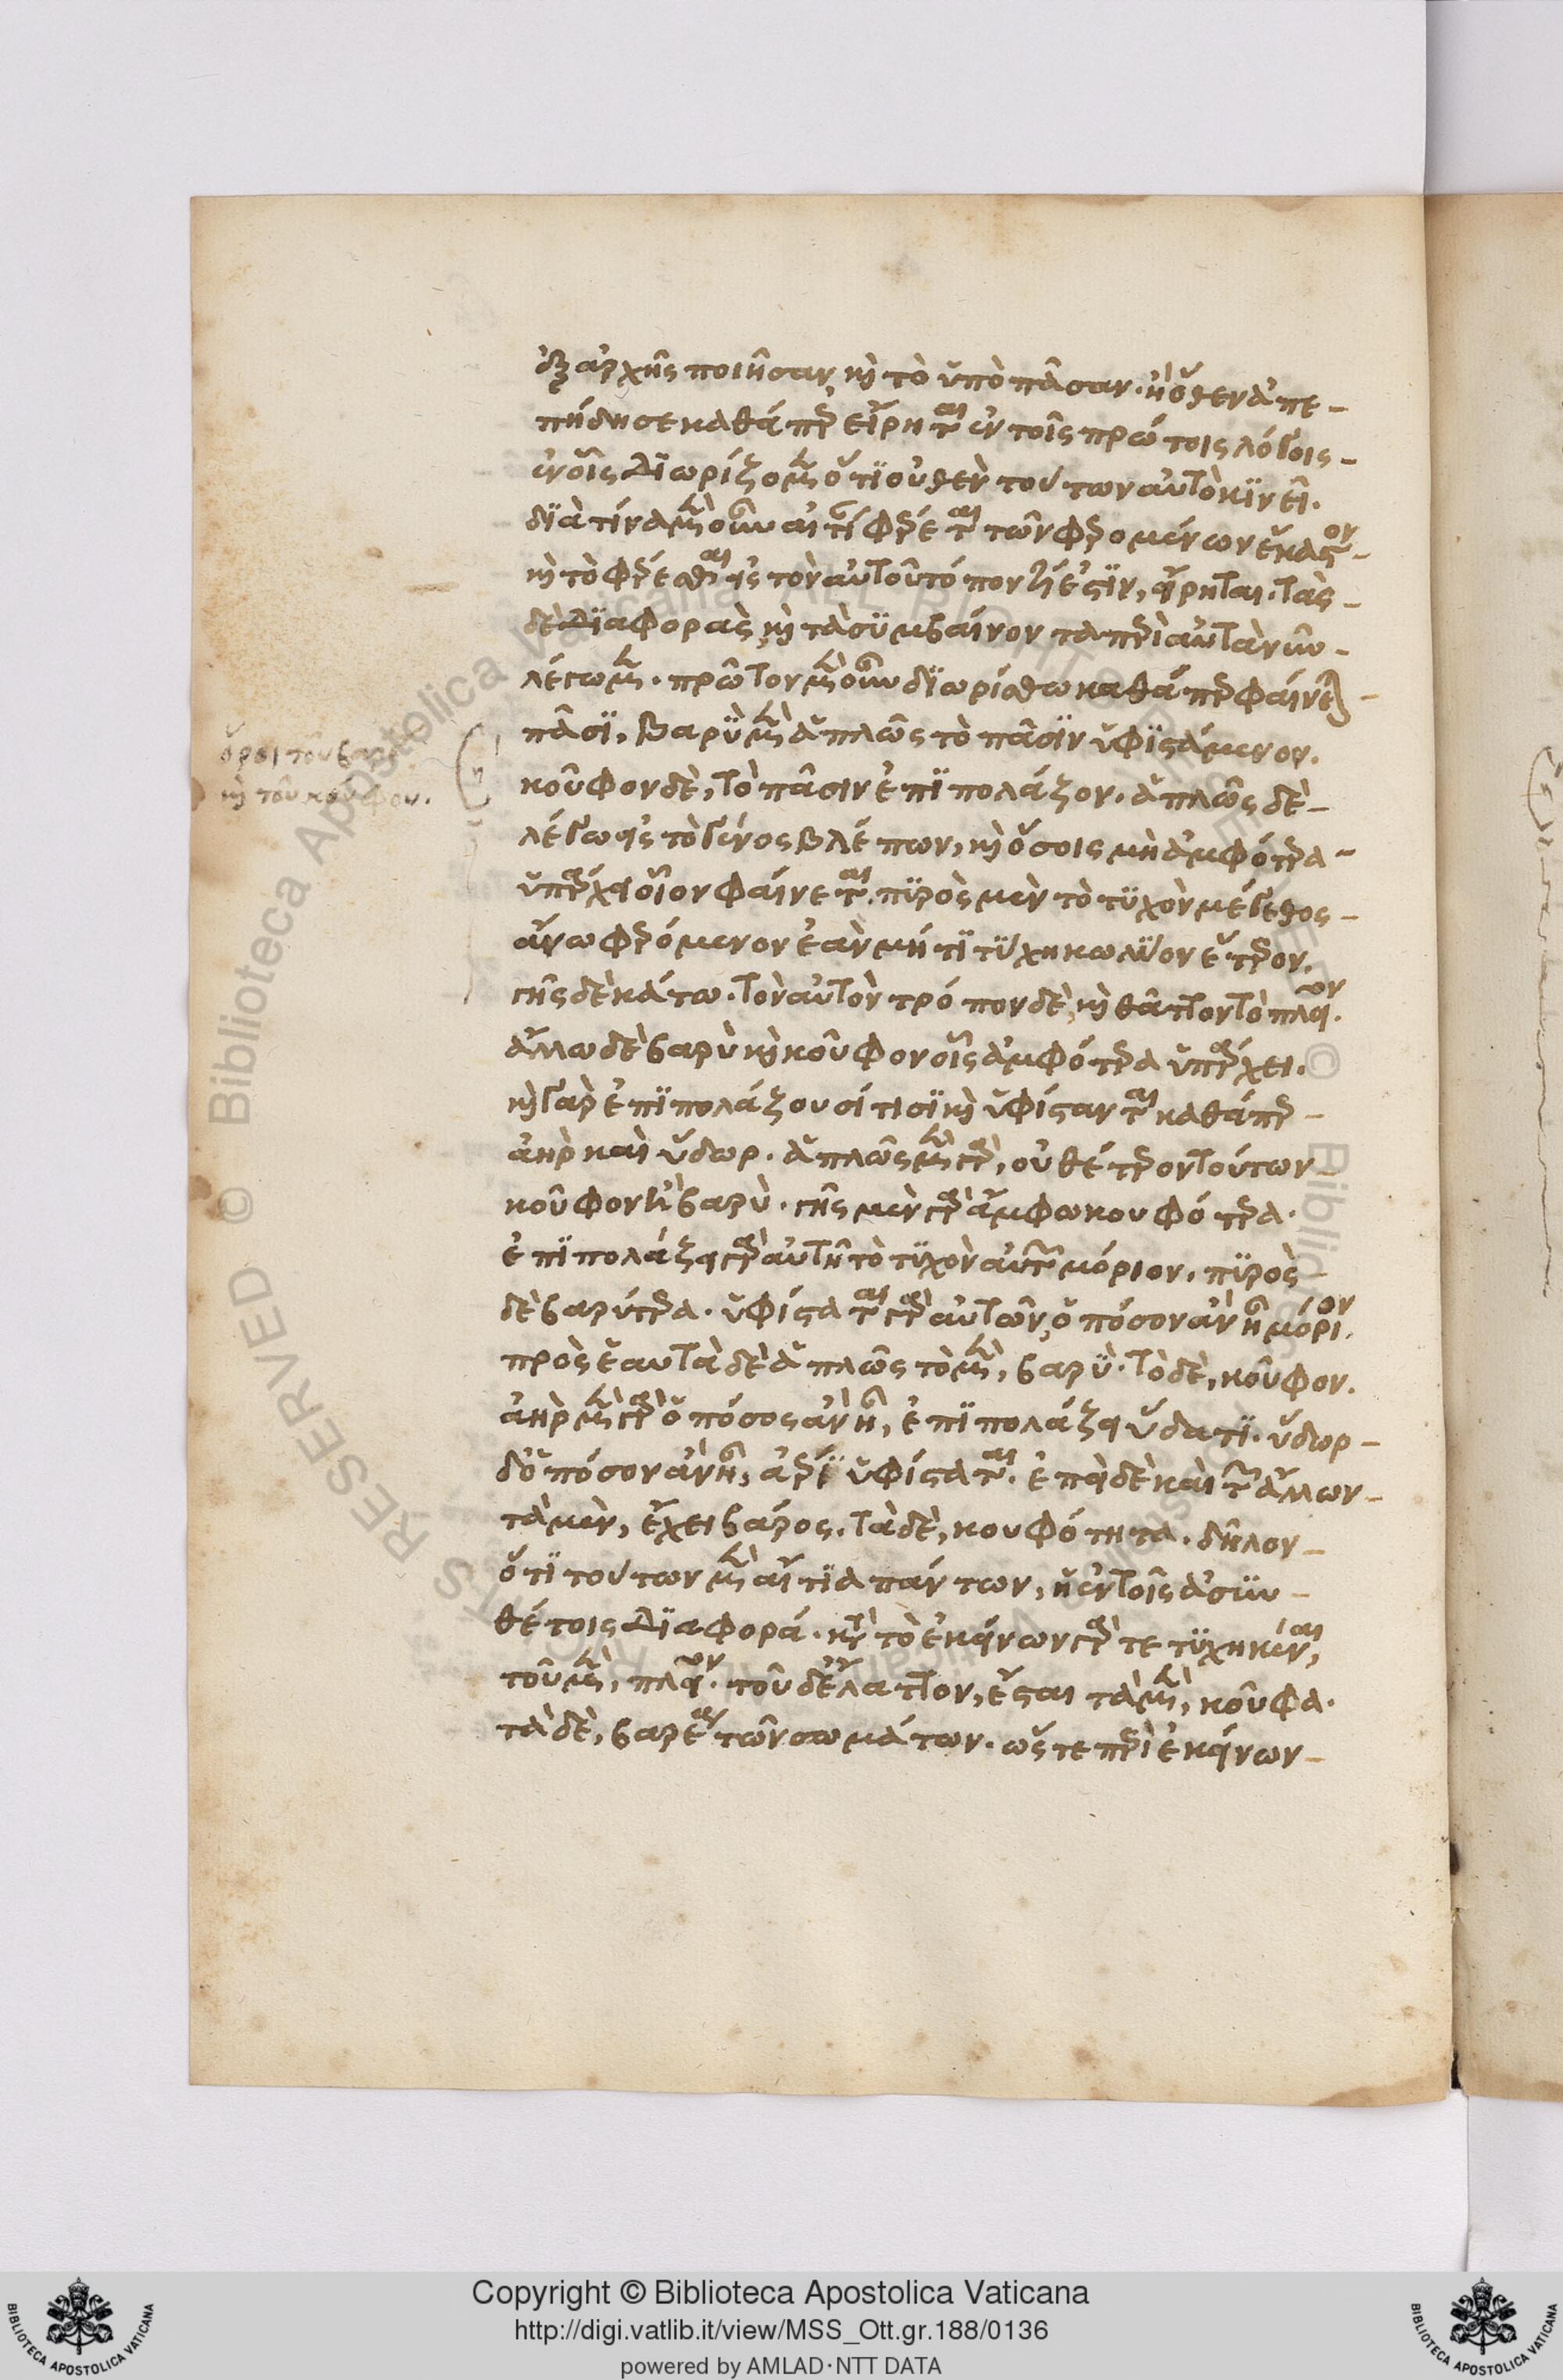 ἐξ ἀρχῆς ποιῆσαν, καὶ τὸ ὑποπᾶσαν. ἢ ὅθεν ἀπε-
πήδησε καθάπερ εἴρηται ἐν τοῖς πρώτοις λόγοις-
ἐν οἷς διωρίζομεν ὅτι οὐθὲν τούτων αὐτὸ κινεῖ.
διὰ τίνα μὲν οὖν αἰτίαν φέρεται τῶν φερομένων ἕκαστον-
καὶ τὸ φέρεσθαι εἰς τὸν αὐτοῦ τόπον τί ἐστιν, εἴρηται. τὰς-
δὲ διαφορὰς, καὶ τὰ συμβαίνοντα περὶ αὐτὰ νῦν-
λέγωμεν. πρῶτον μὲν οὖν διωρίσθω καθάπερ φαίνεται-
πᾶσι, βαρὺ μὲν ἁπλῶς τὸ πᾶσιν ὑφιστάμενον.
κοῦφον δὲ, τὸ πᾶσιν ἐπιπολάζον. ἁπλῶς δὲ-
λέγω εἰς τὸ γένος βλέπων, καὶ ὅσοις μὴ ἀμφότερα-
ὑπάρχει οἷον φαίνεται. πυρὸς μὲν τὸ τυχὸν μέγεθος-
ἄνω φερόμενον ἐὰν μή τι τύχη κωλύον ἕτερον.
γῆς δὲ κάτω. τὸν αὐτὸν τρόπον δὲ, καὶ θᾶττον τὸ πλεῖον.
ἄλλω δὲ βαρὺ καὶ κοῦφον οἷς ἀμφότερα ὑπάρχει.
καὶ γὰρ ἐπιπολάζουσί τισι καὶ ὑφίστανται καθάπερ-
ἀὴρ καὶ ὕδωρ. ἁπλῶς μὲν γὰρ, οὐθέτερον τούτων-
κοῦφον ἢ βαρὺ. γῆς μὲν γὰρ ἄμφω κουφότερα.
ἐπιπολάζει γὰρ αὐτῆ τὸ τυχὸν αὐτῶν μόριον. πυρὸς-
δὲ βαρύτερα. ὑφίσταται γὰρ αὐτῶν, ὁπόσον ἂν ἦ μόριον.
πρὸς ἑαυτὰ δὲ ἁπλῶς τὸ μὲν, βαρὺ. τὸ δὲ, κοῦφον.
ἀὴρ μὲν γὰρ ὁπόσος ἂν ἦ, ἐπιπολάζει ὕδατι. ὕδωρ-
δ' ὁπόσον ἂν ἦ, ἀέρι ὑφίσταται. ἐπεὶ δὲ καὶ τῶν ἄλλων-
τὰ μὲν, ἔχει βάρος. τὰ δὲ, κουφότητα. δῆλον-
ὅτι τούτων μὲν αἰτία πάντων, ἡ ἐν τοῖς ἀσυν-
θέτοις διαφορά. κατὰ τὸ ἐκείνων γὰρ τετυχηκέναι,
τοῦ μὲν, πλεῖον. τοῦ δ' ἔλαττον, ἔσται τὰ μὲν, κοῦφα.
τὰ δὲ, βαρέα τῶν σωμάτων. ὥστε περὶ ἐκείνων-
ὅροι τοῦ βαρέος
καὶ τοῦ κούφου.
Copyright © Biblioteca Apostolica Vaticana
http://digi.vatlib.it/view/MSS_Ott.gr.188/0136
powered by AMLAD·NTT DATA